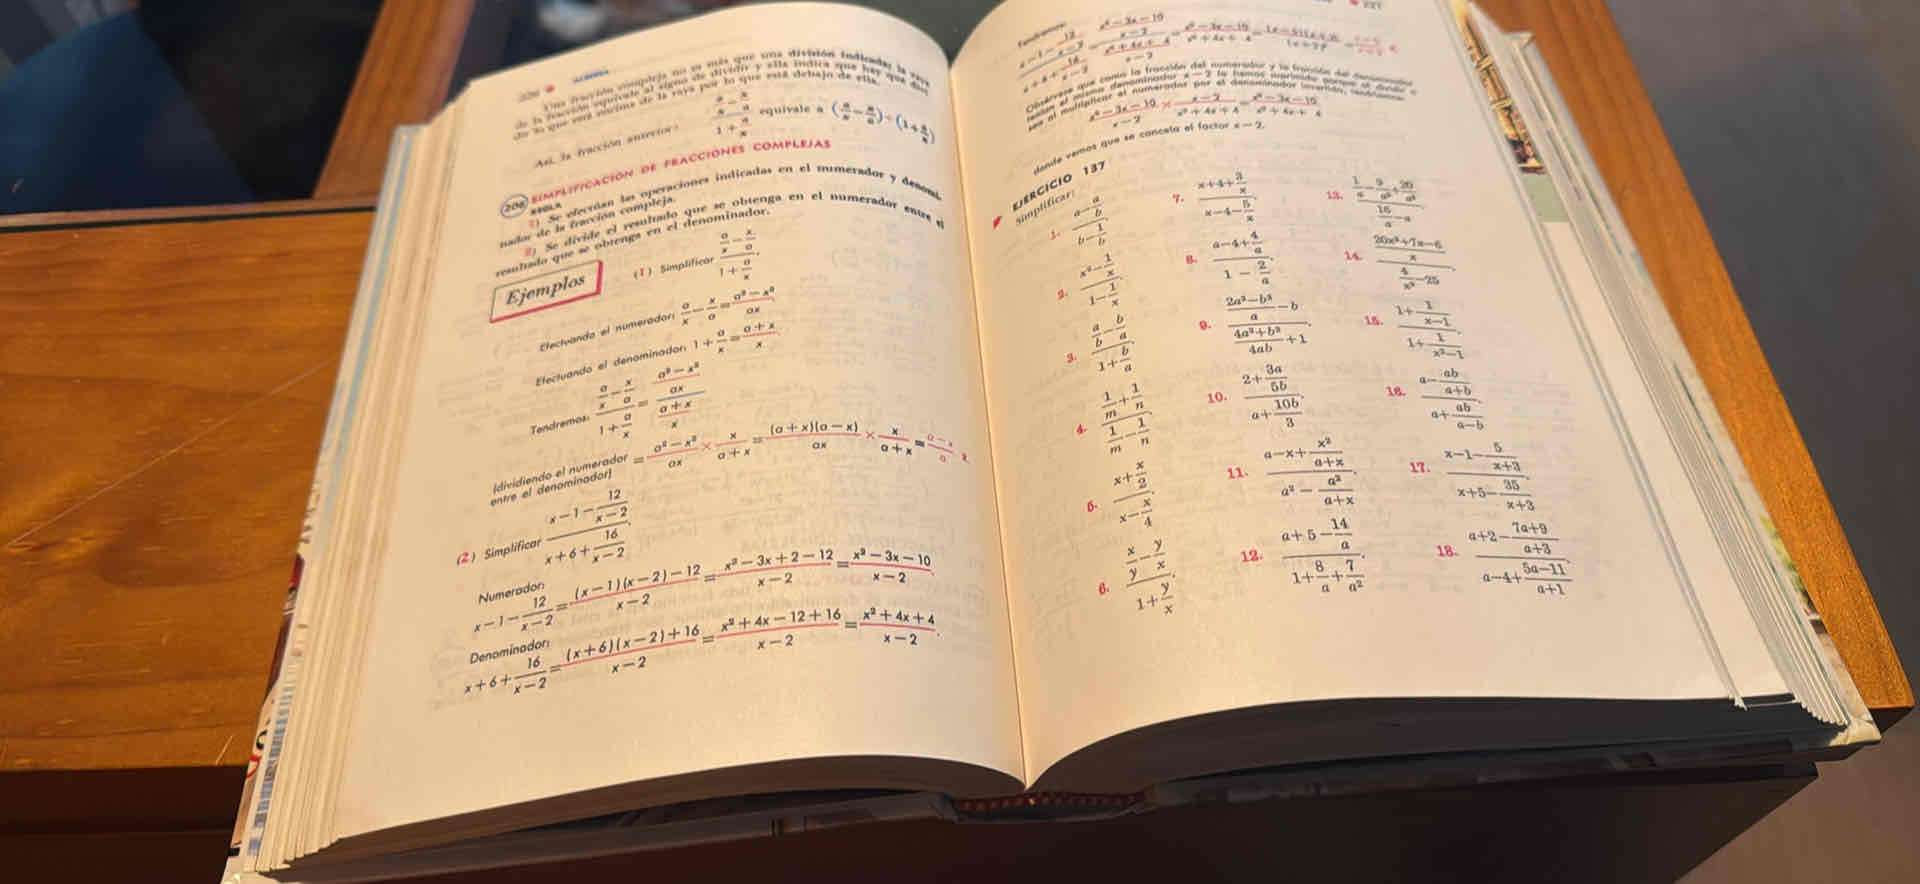 226 ALGEBRA
Una fracción compleja no es más que una división indicada; la raya
de la fracción equivale al signo de dividir y ella indica que hay que divi-
dir lo que está encima de la raya por lo que está debajo de ella.
Así, la fracción anterior: (a/x − x/a)/(1 + a/x) equivale a (a/x − x/a) ÷ (1 + a/x)
208 SIMPLIFICACION DE FRACCIONES COMPLEJAS
REGLA
1) Se efectúan las operaciones indicadas en el numerador y denomi-
nador de la fracción compleja.
2) Se divide el resultado que se obtenga en el numerador entre el
resultado que se obtenga en el denominador.
Ejemplos
(1) Simplificar (a/x − x/a)/(1 + a/x).
Efectuando el numerador: a/x − x/a = (a² − x²)/ax
Efectuando el denominador: 1 + a/x = (a + x)/x.
Tendremos: (a/x − x/a)/(1 + a/x) = ((a² − x²)/ax)/((a + x)/x)
(dividiendo el numerador
entre el denominador) = (a² − x²)/ax × x/(a + x) = (a + x)(a − x)/ax × x/(a + x) = (a − x)/a
(2) Simplificar (x − 1 − 12/(x − 2))/(x + 6 + 16/(x − 2)).
Numerador:
x − 1 − 12/(x − 2) = ((x − 1)(x − 2) − 12)/(x − 2) = (x² − 3x + 2 − 12)/(x − 2) = (x² − 3x − 10)/(x − 2).
Denominador:
x + 6 + 16/(x − 2) = ((x + 6)(x − 2) + 16)/(x − 2) = (x² + 4x − 12 + 16)/(x − 2) = (x² + 4x + 4)/(x − 2).
227
Tendremos:
(x − 1 − 12/(x − 2))/(x + 6 + 16/(x − 2)) = ((x² − 3x − 10)/(x − 2))/((x² + 4x + 4)/(x − 2)) = (x² − 3x − 10)/(x² + 4x + 4) = (x − 5)(x + 2)/(x + 2)² = (x − 5)/(x + 2)
Obsérvese que como la fracción del numerador y la fracción del denominador
tenían el mismo denominador x − 2 lo hemos suprimido porque al dividir o
sea al multiplicar el numerador por el denominador invertido, tendríamos:
(x² − 3x − 10)/(x − 2) × (x − 2)/(x² + 4x + 4) = (x² − 3x − 10)/(x² + 4x + 4)
donde vemos que se cancela el factor x − 2.
EJERCICIO 137
Simplificar:
1. (a − a/b)/(b − 1/b).
2. (x² − 1/x)/(1 − 1/x).
3. (a/b − b/a)/(1 + b/a).
4. (1/m + 1/n)/(1/m − 1/n).
5. (x + x/2)/(x − x/4).
6. (x/y − y/x)/(1 + y/x).
7. (x + 4 + 3/x)/(x − 4 − 5/x).
8. (a − 4 + 4/a)/(1 − 2/a).
9. ((2a² − b²)/a − b)/((4a² + b²)/4ab + 1).
10. (2 + 3a/5b)/(a + 10b/3).
11. (a − x + x²/(a + x))/(a² − a²/(a + x)).
12. (a + 5 − 14/a)/(1 + 8/a + 7/a²).
13. (1/a − 9/a² + 20/a³)/(16/a − a).
14. ((20x² + 7x − 6)/x)/(4/x² − 25).
15. (1 + 1/(x − 1))/(1 + 1/(x² − 1)).
16. (a − ab/(a + b))/(a + ab/(a − b)).
17. (x − 1 − 5/(x + 3))/(x + 5 − 35/(x + 3)).
18. (a + 2 − (7a + 9)/(a + 3))/(a − 4 + (5a − 11)/(a + 1)).